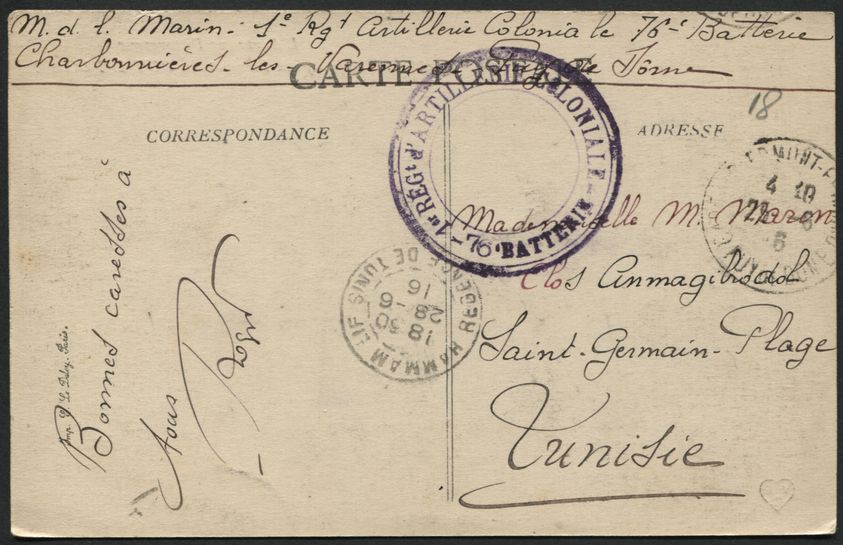 M. d. l. Marin - 1e Rgt Artillerie Coloniale 76e Batterie
Charbonnières-les-Varennes - Puy de Dôme
CARTE POSTALE
CORRESPONDANCE
ADRESSE
18
1er REGt d'ARTILLERIE COLONIALE
- 76e BATTERIE -
4 10
22 6
HAMMAM LIF REGENCE DE TUNIS
18 30
28 - 6
16
Mademoiselle M. Marin
Clos
Saint-Germain-Plage
Tunisie
Bonnes caresses à
tous
Roger
Imp. Le Deley, Paris.